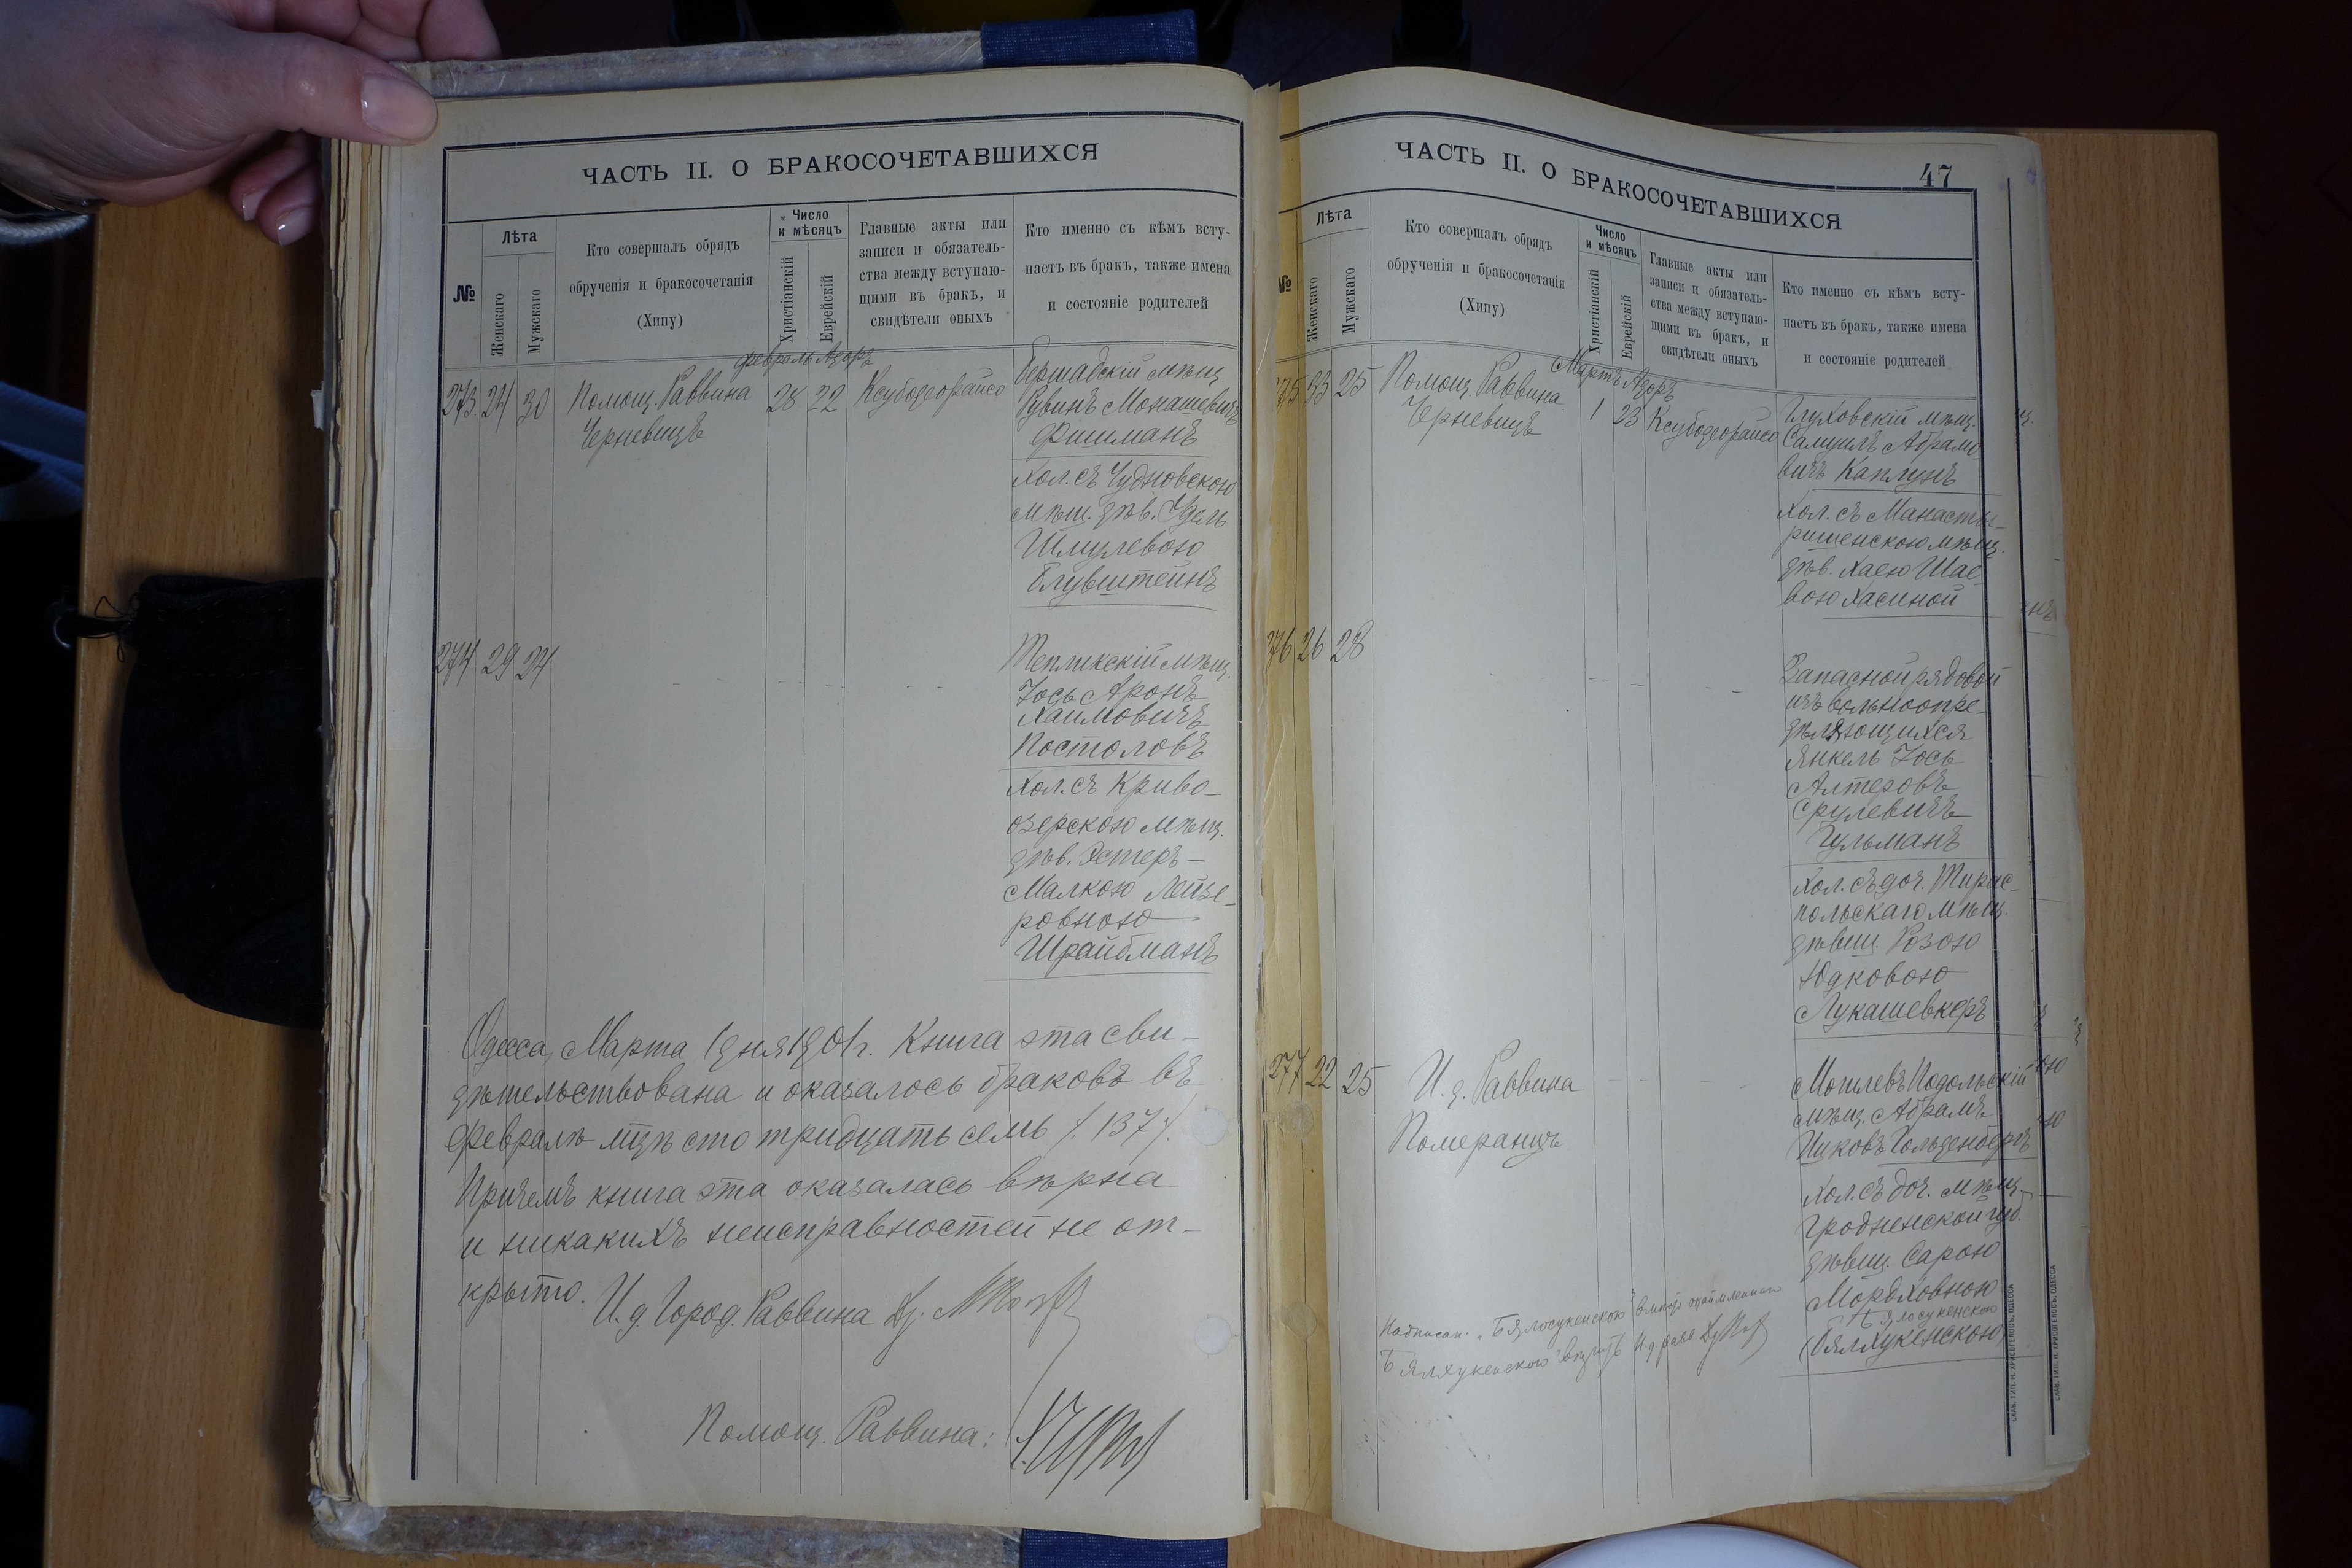 ЧАСТЬ II. О БРАКОСОЧЕТАВШИХСЯ
№
Лѣта
Женскаго
Мужскаго
Кто совершалъ обрядъ
обрученія и бракосочетанія
(Хипу)
Число
и мѣсяцъ
Христіанскій
Еврейскій
Главные акты или
записи и обязатель-
ства между вступаю-
щими въ бракъ, и
свидѣтели оныхъ
Кто именно съ кѣмъ всту-
паетъ въ бракъ, также имена
и состояніе родителей
февраль Адоръ
273. 24 30 Помощ. Раввина 28 22 Ксубодеорайсо
Черневицъ
Бершадскій мѣщ.
Рувинъ Монашевичъ
Фишманъ
Хол. съ Чудновскою
мѣщ. дѣв. Удель
Шмулевою
Блувштейнъ
274 29 24
Тепликскій мѣщ.
Іось Аронъ
Хаимовичъ
Постоловъ
Хол. съ Криво-
озерскою мѣщ.
дѣв. Эстеръ-
Малкою Лейзе-
ровною
Шрайбманъ
Одесса, Марта 1 дня 1901 г. Книга эта сви-
дѣтельствована и оказалось браковъ въ
Февралѣ мцѣ сто тридцать семь /. 137 /.
Причемъ книга эта оказалась вѣрна
и никакихъ неисправностей не от-
крыто.
И. д. Город. Раввина
Помощ. Раввина:
ЧАСТЬ II. О БРАКОСОЧЕТАВШИХСЯ
47
№
Лѣта
Женскаго
Мужскаго
Кто совершалъ обрядъ
обрученія и бракосочетанія
(Хипу)
Число
и мѣсяцъ
Христіанскій
Еврейскій
Главные акты или
записи и обязатель-
ства между вступаю-
щими въ бракъ, и
свидѣтели оныхъ
Кто именно съ кѣмъ всту-
паетъ въ бракъ, также имена
и состояніе родителей
Мартъ Адоръ
275 33 25 Помощ. Раввина 1 23 Ксубодеорайсо
Черневицъ
Глуховскій мѣщ.
Самуилъ Абрамо
вичъ Каплунъ
Хол. съ Манасты-
рищенскою мѣщ.
дѣв. Хаею Шае-
вою Хасиной
276 26 28
Запасной рядовой
изъ вольноопре-
дѣляющихся
Янкель Іось
Алтеровъ
Срулевичъ
Гульманъ
Хол. съ доч. Тирас-
польскаго мѣщ.
дѣвиц. Розою
Юдковою
Лукашевкеръ
277 22 25 И. д. Раввина
Померанцъ
Могилевъ Подольскій
мѣщ. Абрамъ
Ицковъ Гольденбергъ
Хол. съ доч. мѣщ.
Гродненской губ.
дѣвиц. Сарою
Мордховною
Бялосукенскою
(Бялхукенскою)
Надписан. „Бялосукенскою"
Бялхукенскою" вѣрить И. д. равв.
СЛАВ. ТИП. Н. ХРИСОГЕЛОСЪ, ОДЕССА
СЛАВ. ТИП. Н. ХРИСОГЕЛОСЪ, ОДЕССА